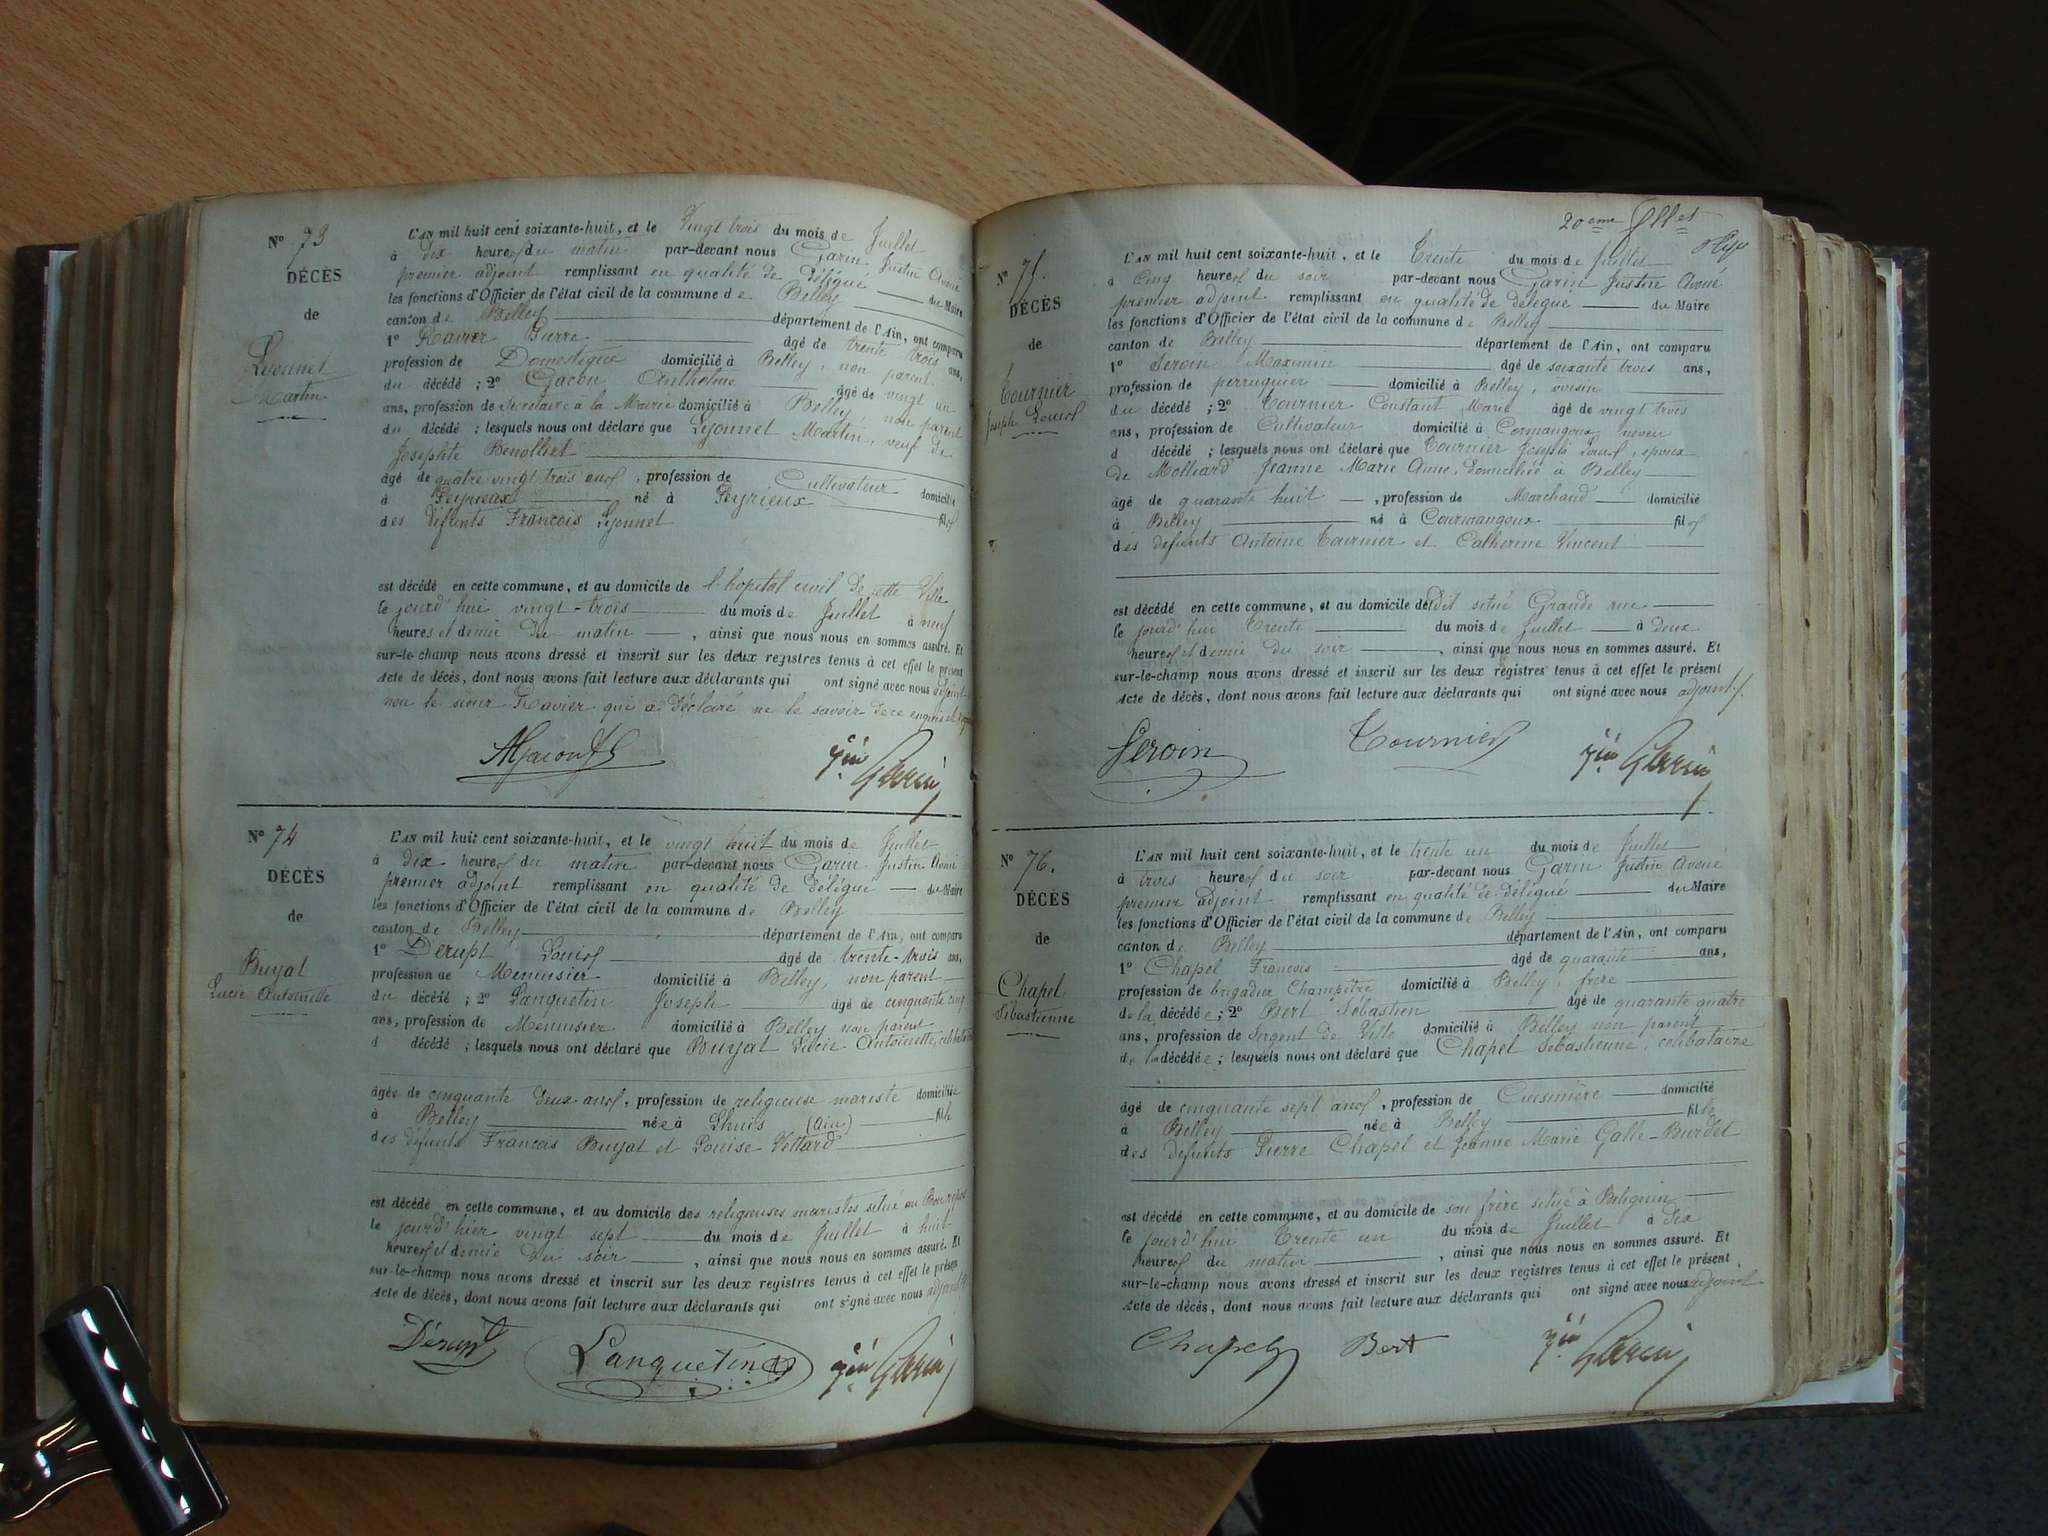 N° 73
DÉCÈS
de
Lyonnet
Martin
L'AN mil huit cent soixante-huit, et le vingt trois du mois de Juillet
à dix heures du matin par-devant nous Garin Justin Avoué
premier adjoint remplissant en qualité de délégué du Maire
les fonctions d'Officier de l'état civil de la commune de Belley
canton de Belley département de l'Ain, ont comparu
1° Ravier Pierre âgé de trente trois ans,
profession de Domestique domicilié à Belley, non parent
du décédé ; 2° Gacon Anthelme âgé de vingt un
ans, profession de Secrétaire à la Mairie domicilié à Belley, non parent
du décédé ; lesquels nous ont déclaré que Lyonnet Martin, veuf de
Josephte Benolliet
âgé de quatre vingt trois ans, profession de Cultivateur domicilié
à Peyrieux né à Peyrieux fils
des défunts François Lyonnet
est décédé en cette commune, et au domicile de l'hopital civil de cette Ville
le jourd'hui vingt-trois du mois de Juillet à neuf
heures et demie du matin, ainsi que nous nous en sommes assuré. Et
sur-le-champ nous avons dressé et inscrit sur les deux registres tenus à cet effet le présent
acte de décès, dont nous avons fait lecture aux déclarants qui ont signé avec nous adjoint
non le sieur Ravier qui a déclaré ne le savoir de ce enquis
Garin
N° 74
DÉCÈS
de
Buyat
Lucie Antoinette
L'AN mil huit cent soixante-huit, et le vingt huit du mois de Juillet
à dix heures du matin par-devant nous Garin Justin Avoué
premier adjoint remplissant en qualité de délégué du Maire
les fonctions d'Officier de l'état civil de la commune de Belley
canton de Belley département de l'Ain, ont comparu
1° Derupt Louis âgé de trente-trois ans,
profession de Menuisier domicilié à Belley, non parent
du décédé ; 2° Lanquetin Joseph âgé de cinquante cinq
ans, profession de Menuisier domicilié à Belley non parent
d décédé ; lesquels nous ont déclaré que Buyat Lucie Antoinette, célibataire
âgée de cinquante deux ans, profession de religieuse mariste domiciliée
à Belley née à Lhuis (Ain) fille
des défunts François Buyat et Louise Vettard
est décédé en cette commune, et au domicile des religieuses maristes situé au Bon repos
le jourd'hier vingt sept du mois de Juillet à huit
heures et demie du soir, ainsi que nous nous en sommes assuré. Et
sur-le-champ nous avons dressé et inscrit sur les deux registres tenus à cet effet le présent
acte de décès, dont nous avons fait lecture aux déclarants qui ont signé avec nous adjoint
Dérupt Lanquetin Garin
20eme fllet
N° 75.
DÉCÈS
de
Tournier
Joseph Louis
L'AN mil huit cent soixante-huit, et le Trente du mois de Juillet
à Cinq heures du soir par-devant nous Garin Justin Avoué
premier adjoint remplissant en qualité de délégué du Maire
les fonctions d'Officier de l'état civil de la commune de Belley
canton de Belley département de l'Ain, ont comparu
1° Seroin Maximin âgé de soixante trois ans,
profession de perruquier domicilié à Belley, voisin
du décédé ; 2° Tournier Constant Marie âgé de vingt trois
ans, profession de Cultivateur domicilié à Cormangoux neveu
d décédé ; lesquels nous ont déclaré que Tournier Joseph Louis, époux
de Molliard Jeanne Marie Anne, domiciliée à Belley
âgé de quarante huit, profession de Marchand domicilié
à Belley né à Courmangoux fils
des defunts Antoine Tournier et Catherine Vincent
est décédé en cette commune, et au domicile dudit situé Grande rue
le jourd'hui Trente du mois de Juillet à deux
heures et demie du soir, ainsi que nous nous en sommes assuré. Et
sur-le-champ nous avons dressé et inscrit sur les deux registres tenus à cet effet le présent
acte de décès, dont nous avons fait lecture aux déclarants qui ont signé avec nous adjoint.
Seroin Tournier Garin
N° 76.
DÉCÈS
de
Chapel
Sébastienne
L'AN mil huit cent soixante-huit, et le trente un du mois de Juillet
à trois heures du soir par-devant nous Garin Justin Avoué
premier adjoint remplissant en qualité de délégué du Maire
les fonctions d'Officier de l'état civil de la commune de Belley
canton de Belley département de l'Ain, ont comparu
1° Chapel François âgé de quarante ans,
profession de brigadier Champêtre domicilié à Belley, frère
de la décédée ; 2° Bert Sébastien âgé de quarante quatre
ans, profession de Sergent de Ville domicilié à Belley non parent
de la décédée ; lesquels nous ont déclaré que Chapel Sébastienne, célibataire
âgé de cinquante sept ans, profession de Cuisinière domicilié
à Belley née à Belley fille
des defunts Pierre Chapel et Jeanne Marie Galle-Burdet
est décédé en cette commune, et au domicile de son frère situé à Billignin
le jourd'hui Trente un du mois de Juillet à dix
heures du matin, ainsi que nous nous en sommes assuré. Et
sur-le-champ nous avons dressé et inscrit sur les deux registres tenus à cet effet le présent
acte de décès, dont nous avons fait lecture aux déclarants qui ont signé avec nous adjoint
Chapel Bert Garin